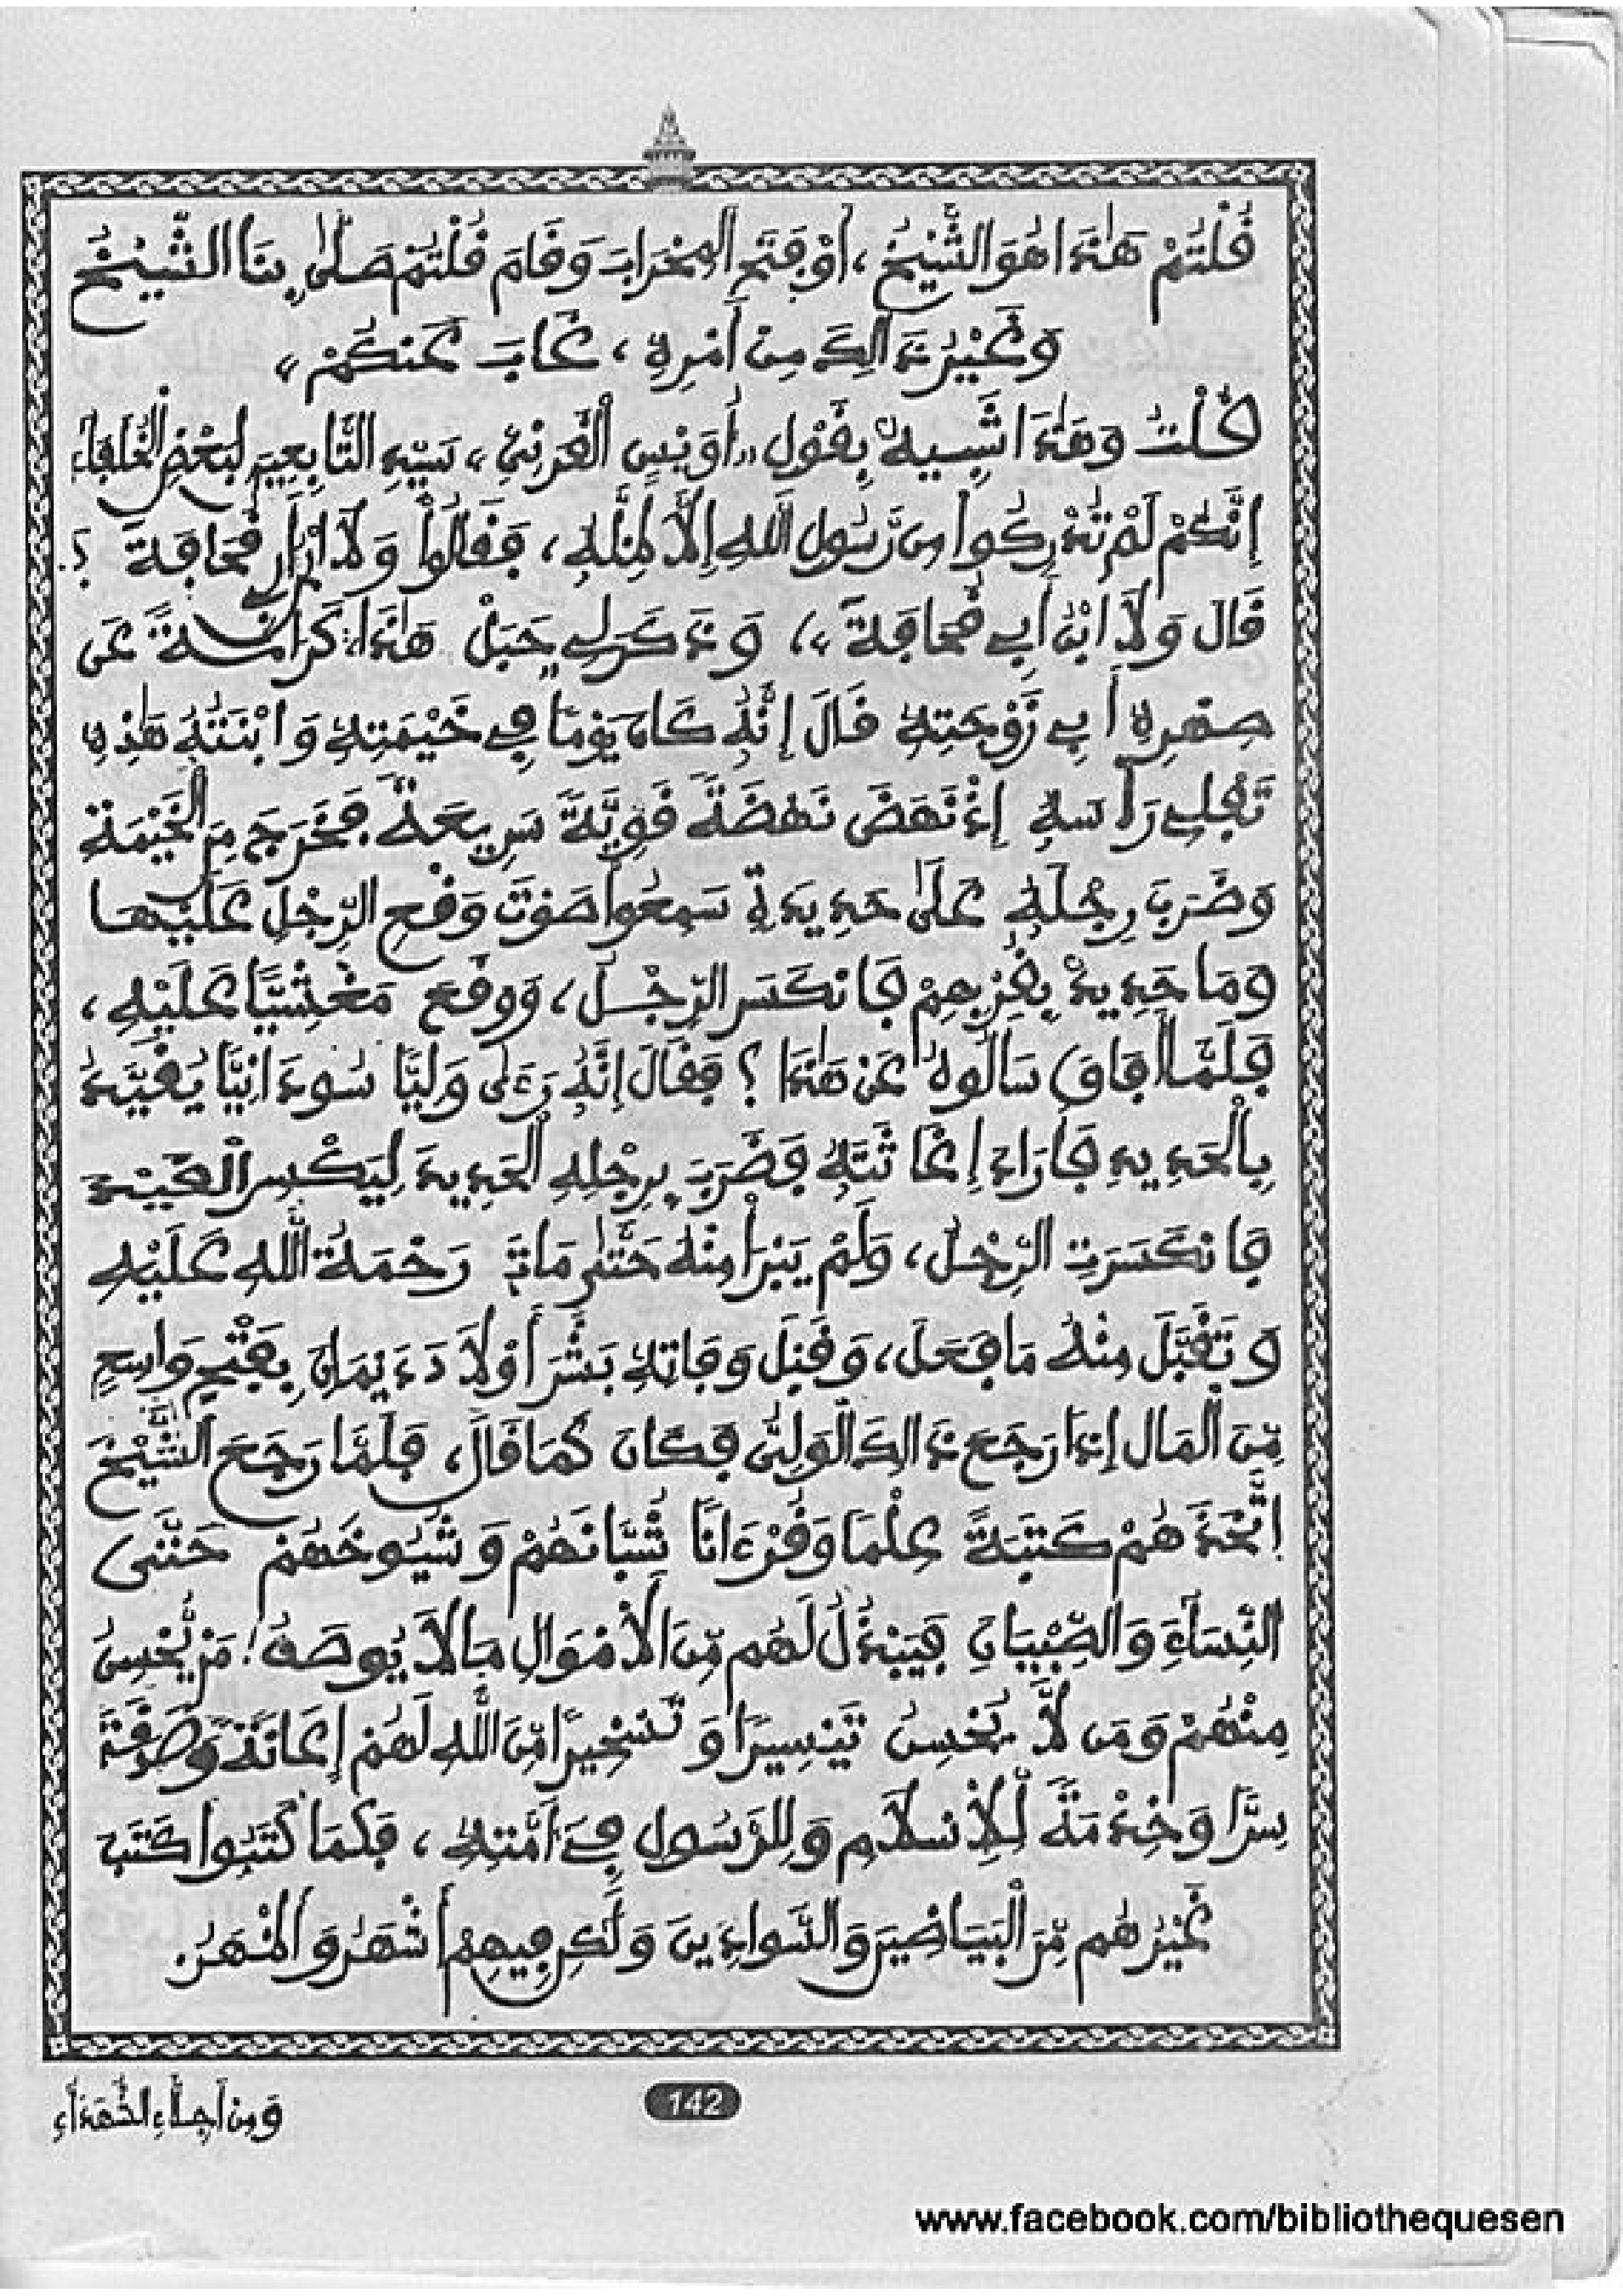 قُلْتُمْ هَٰذَا هُوَ الشَّيْخُ، أَوْ فَتَحَ الْمِحْرَابَ وَقَامَ قُلْتُمْ صَلَّىٰ بِنَا الشَّيْخُ
وَغَيْرُ ذَالِكَ مِنْ أَمْرِهِ، غَابَ عَنكُمْ»
قُلْتُ وَهَٰذَا شَبِيهٌ بِقَوْلِ «أُوَيْسٍ الْقَرَنِيِّ» سَيِّدِ التَّابِعِينَ لِبَعْضِ الْخُلَفَاءِ
إِنَّكُمْ لَمْ تُدْرِكُوا مِن رَّسُولِ اللَّهِ إِلَّا ظِلَّهُ، فَقَالُوا وَلَا ابْنُ أَبِي قُحَافَةَ ؟.
قَالَ وَلَا ابْنُ أَبِي قُحَافَةَ»، وَذَكَرَ لِي جَبَلْ هَٰذَا كَرَامَةً عَن
صِهْرِهِ أَبِي زَوْجَتِهِ قَالَ إِنَّهُ كَانَ يَوْمًا فِي خَيْمَتِهِ وَابْنَتُهُ هَٰذِهِ
تَفْلِي رَأْسَهُ إِذْ نَهَضَ نَهْضَةً قَوِيَّةً سَرِيعَةً. فَخَرَجَ مِنَ الْخَيْمَةِ
وَضَرَبَ رِجْلَهُ عَلَىٰ حَدِيدَةٍ سَمِعُوا صَوْتَ وَقْعِ الرِّجْلِ عَلَيْهَا
وَمَا حَدِيدٌ بِقُرْبِهِمْ فَانكَسَرَ الرِّجْلُ، وَوَقَعَ مَغْشِيًّا عَلَيْهِ،
فَلَمَّا أَفَاقَ سَأَلُوهُ عَنْ هَٰذَا ؟ فَقَالَ إِنَّهُ رَءَىٰ وَلِيًّا سُوءَانِيًّا يُقَيَّدُ
بِالْحَدِيدِ فَأَرَادَ إِغَاثَتَهُ فَضَرَبَ بِرِجْلِهِ الْحَدِيدَ لِيَكْسِرَ الْقَيْدَ
فَانكَسَرَتِ الرِّجْلُ، وَلَمْ يَبْرَأْ مِنْهُ حَتَّىٰ مَاتَ رَحْمَةُ اللَّهِ عَلَيْهِ
وَتَقَبَّلَ مِنْهُ مَا فَعَلَ، وَقَبْلَ وَفَاتِهِ بَشَّرَ أَوْلَادَ دَيْمَانَ بِفَتْحٍ وَاسِعٍ
مِّنَ الْمَالِ إِذَا رَجَعَ ذَالِكَ الْوَلِيُّ فَكَانَ كَمَا قَالَ، فَلَمَّا رَجَعَ الشَّيْخُ
اتَّخَذَهُمْ كَتَبَةً عِلْمًا وَقُرْءَانًا شُبَّانَهُمْ وَشُيُوخَهُمْ حَتَّى
النِّسَاءَ وَالصِّبْيَانَ فَيَبْذُلُ لَهُم مِّنَ الْأَمْوَالِ مَا لَا يُوصَفُ! مَنْ يُّحْسِنُ
مِنْهُمْ وَمَن لَّا يُحْسِنُ تَيْسِيرًا وَتَسْخِيرًا مِّنَ اللَّهِ لَهُمْ إِعَانَةً وَصَدَقَةَ
سِرًّا وَخِدْمَةً لِّلْإِسْلَامِ وَلِلرَّسُولِ فِي أُمَّتِهِ، فَكَمَا كَتَبُوا كَتَبَ
غَيْرُهُم مِّنَ الْبَيَاضِينَ وَالسَّوَادِينَ وَلَٰكِن فِيهِمْ أَشْهَرُ وَأَظْهَرُ.
وَمِنْ أَجِلَّاءِ الشُّهَدَاءِ
142
www.facebook.com/bibliothequesen